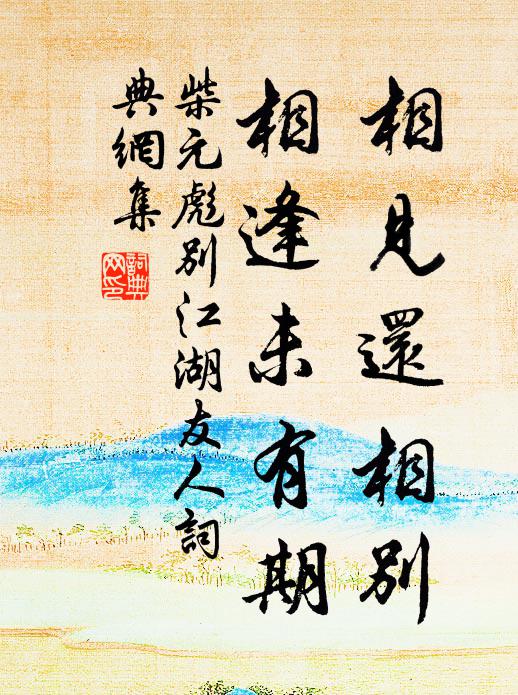 相見還相別
相逢未有期
柴元彪別江湖友人詞
典網集
詞典
网印